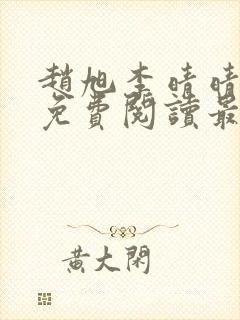 趙旭李晴晴
免費閱讀最
黃大閑